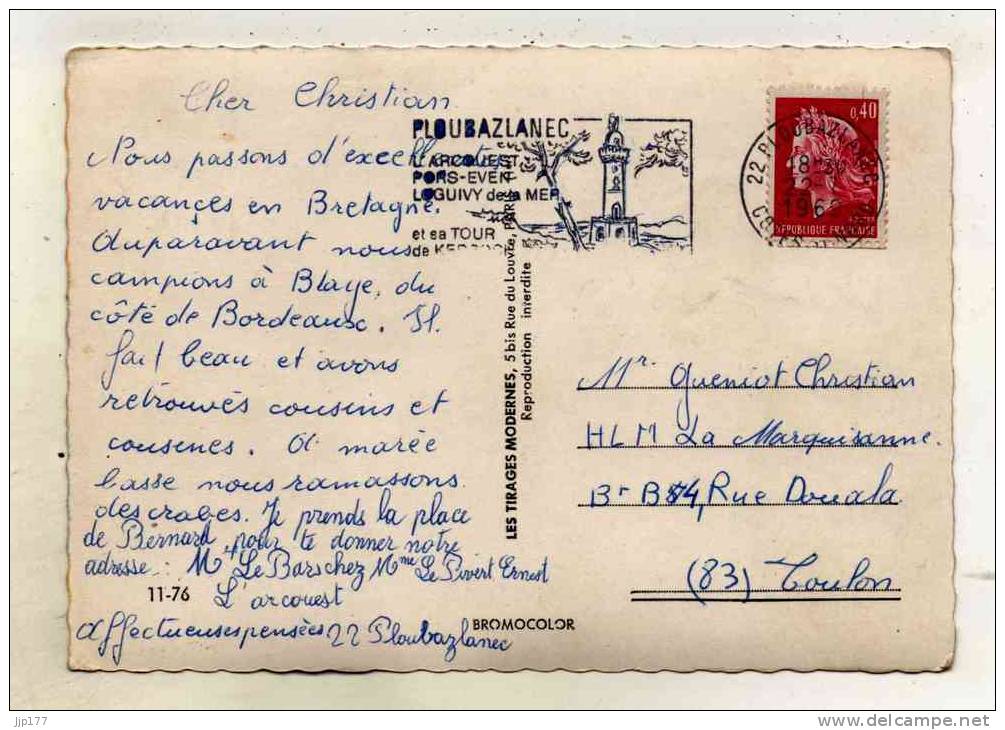 Cher Christian
Nous passons d'excellentes
vacances en Bretagne.
Auparavant nous
campions à Blaye, du
côté de Bordeaux. Il
fait beau et avons
retrouvés cousins et
cousines. A marée
basse nous ramassons
des crabes. Je prends la place
de Bernard pour te donner notre
adresse : Mr Le Bars chez Mme Le Pivert Ernest
L'arcouest
22 Ploubazlanec
Affectueuses pensées
11-76
BROMOCOLOR
PLOUBAZLANEC
L'ARCOUEST
PORS-EVEN
LOGUIVY de la MER
et sa TOUR
de
LES TIRAGES MODERNES, 5 bis Rue du Louvre, PARIS
Reproduction interdite
0,40
RÉPUBLIQUE FRANÇAISE
22 PLOUBAZLANEC
18
196
Mr Gueniot Christian
HLM La Marquisanne.
Bt B84, Rue Douala
(83) Toulon
jjp177
www.delcampe.net